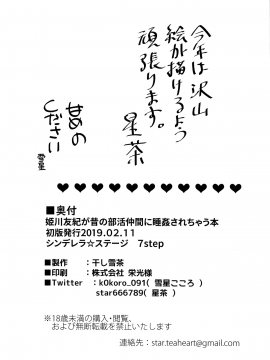 今年は沢山
絵が描けるよう
頑張ります。
星茶
甘めの
ください
雪星
■奥付
姫川友紀が昔の部活仲間に睡姦されちゃう本
初版発行2019.02.11
シンデレラ☆ステージ 7step
■製作 ：干し雪茶
■印刷 ：株式会社 栄光様
■Twitter ：k0koro_091( 雪星こころ )
star666789( 星茶 )
※18歳未満の購入・閲覧、
および無断転載を禁止いたします
連絡先：star.teaheart@gmail.com